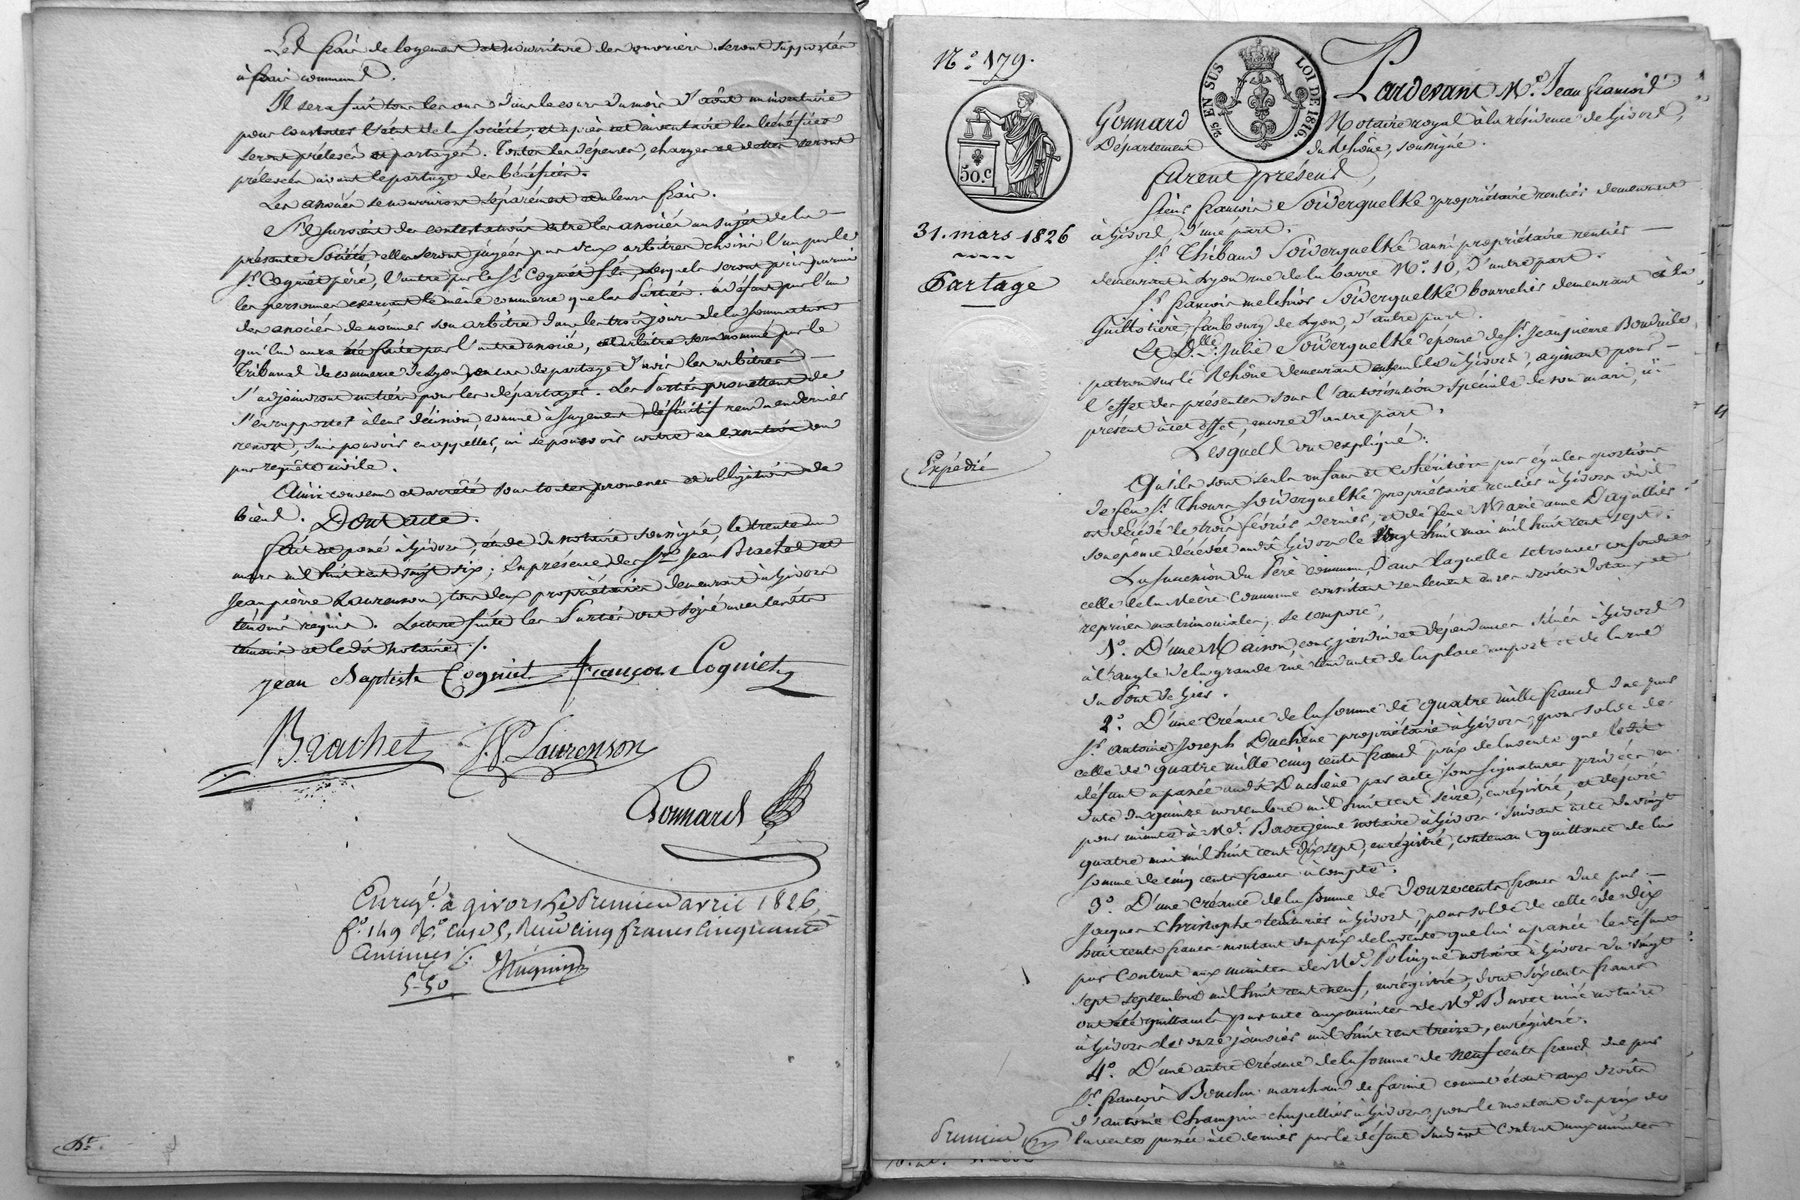 Les frais de logement et nourriture des ouvriers seront supportés
à frais communs.
Il sera fait tous les ans dans le cours du mois d'août un inventaire
pour constater l'état de la société, et après cet inventaire les bénéfices
seront prélevés et partagés. Toutes les dépenses, charges et dettes seront
prélevées avant le partage des bénéfices.
Les associés se nourriront séparément et à leurs frais.
S'il survient des contestations entre les associés au sujet de la
présente Société elles seront jugées par deux arbitres choisis l'un par le
Sr. Cogniet père, l'autre par le Sr. Cogniet fils, lesquels seront pris parmi
les personnes exerçant le même commerce que les Parties. à défaut par l'un
des associés de nommer son arbitre dans les trois jours de la sommation
qui lui aura été faite par l'autre associé, cet arbitre sera nommé par le
Tribunal de commerce de Lyon, en cas de partage d'avis les arbitres
s'adjoindront un tiers pour les départager. Les Parties promettent de
s'en rapporter à leur décision comme à jugement définitif rendu en dernier
ressort, sans pouvoir en appeller, ni se pourvoir contre en cassation ou
par requête civile.
Ainsi convenu et arrêté sous toutes promesses et obligations de
biens. Dont acte.
Fait et passé à Givors, étude du notaire soussigné, le trente un
mars mil huit cent vingt six; En présence des Srs. Jean Brachet et
Jean pierre Laurenson, tous deux propriétaires demeurant à Givors
témoins requis. Lecture faite les Parties ont signé avec les dits
témoins et le dit notaire ./.
jean Baptiste Cogniet François Cogniet
Brachet J. P. Laurenson
Gonnard
Enregé. à givors Le premier avril 1826
fo. 149 Ro. case 5, Reçu cinq francs cinquante
centimes
5-50
N.o 179.
50.c
25 EN SUS
LOI DE 1816.
31. mars 1826
Partage
Expédié
Pardevant Me. Jean françois
Gonnard Notaire royal à la résidence de Givors,
Département du Rhône, soussigné.
furent présens,
Sieur françois Soiderquelké propriétaire rentier demeurant
à Givors, d'une part.
Sr. Thibaud Soiderquelké aussi propriétaire rentier
demeurant à Lyon rue de la barre No. 10, d'autre part.
Sr. françois melchior Soiderquelké bourrelier demeurant à la
Guillotière faubourg de Lyon, d'autre part.
Et Dlle. Julie Soiderquelké épouse de Sr. Jean pierre
patron sur le Rhône demeurant ensembles à Givors, agissant pour
l'effet des présentes sous l'autorisation spéciale de son mari, ici
présent à cet effet, encore d'autre part.
Lesquels ont expliqué:
Qu'ils sont seuls enfans et cohéritiers par égales portions
de feu Sr. Soiderquelké propriétaire rentier à Givors où il
est décédé le trois février dernier, et de feue Marie anne
son épouse décédée audit Givors le vingt huit mai mil huit cent sept.
La succession du Père commun, dans laquelle se trouve confondue
celle de la Mère commune consistant seulement en ses droits dotaux et
reprises matrimoniales, se compose;
1o. D'une Maison, cour, jardin et dépendances situés à Givors
à l'angle de la grande rue tendante de la place au port et de la rue
du Pont de Gier.
2o. D'une créance de la somme de quatre mille francs due par
Sr. antoine Joseph Duchêne propriétaire à Givors, pour solde de
celle de quatre mille cinq cents francs prix de la vente que le dit
défunt a passée audit Duchêne par acte sous signatures privées en
date du quinze novembre mil huit cent seize, enregistré, et déposé
pour minute à Me. notaire à Givors suivant acte du vingt
quatre mai mil huit cent dix sept, enregistré, contenant quittance de la
somme de cinq cents francs à compte.
3o. D'une créance de la somme de douze cents francs due par
Jacques Christophe teinturier à Givors, pour solde de celle de dix
huit cents francs montant du prix de la vente que lui a passée le défunt
par contrat aux minutes de Me. notaire à Givors du vingt
sept septembre mil huit cent neuf, enregistré, dont six cents francs
ont été quittancés par acte aux minutes de Me. notaire
à Givors le onze janvier mil huit cent treize, enregistré.
4o. D'une autre créance de la somme de neuf cents francs due par
Sr. françois marchand de farine comme étant aux droits
d'antoine chapellier à Givors, pour le montant du prix de
la vente passée à ce dernier par le défunt suivant contrat aux minutes
premier